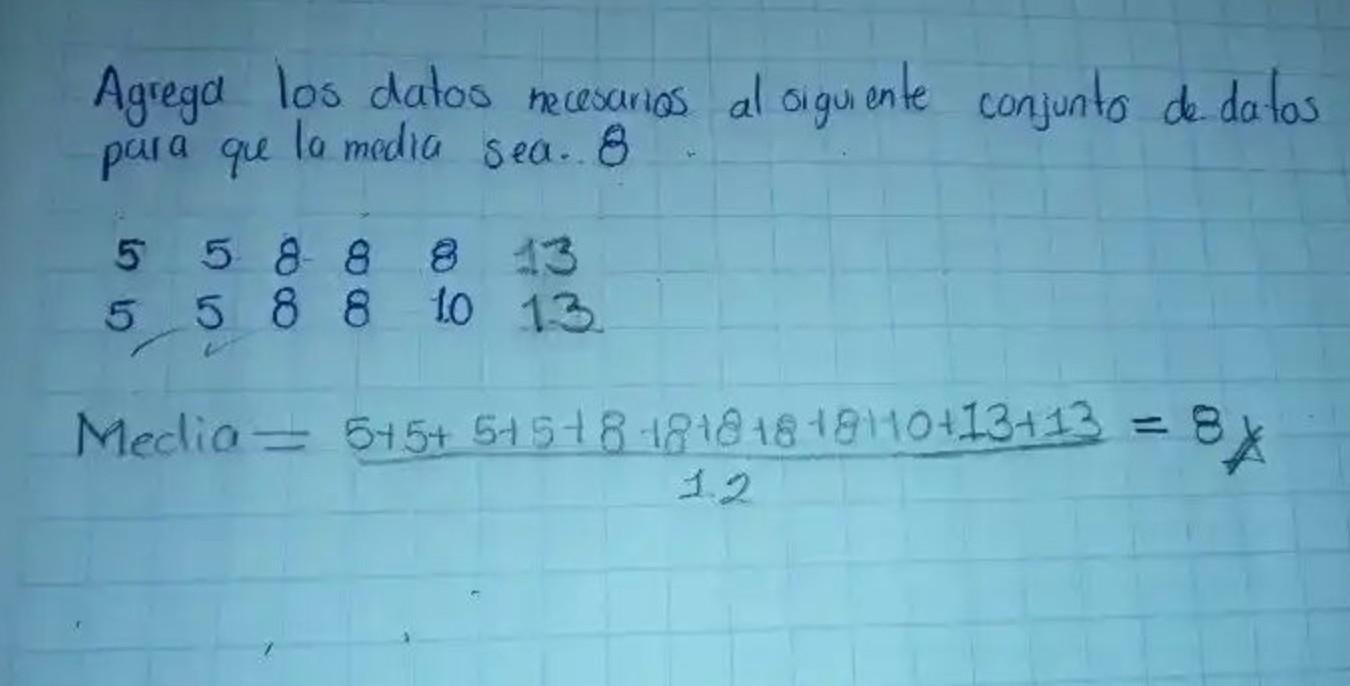 Agrega los datos necesarios al siguiente conjunto de datos
para que la media sea.. 8
5 5 8 8 8 13
5 5 8 8 10 13
Media = 5+5+ 5+5+8+8+8+8+8+10+13+13 = 8
12